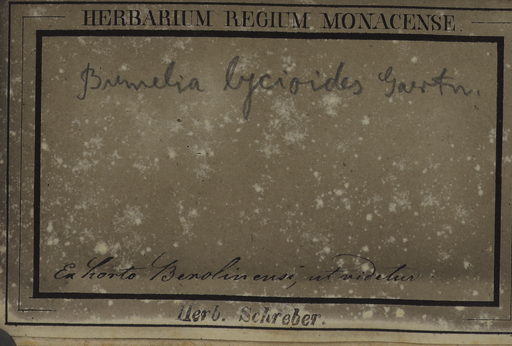 HERBARIUM REGIUM MONACENSE.
Bumelia lycioides Gaertn.
Ex horto Berolinensi, ut videtur
Herb. Schreber.